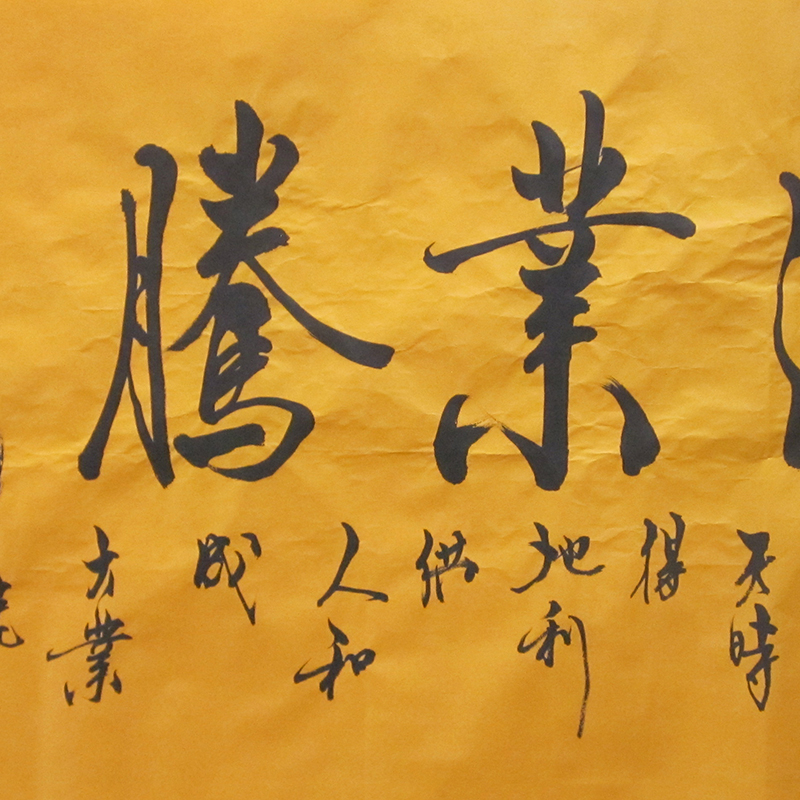 業騰
天時
得
地利
供
人和
成
大業